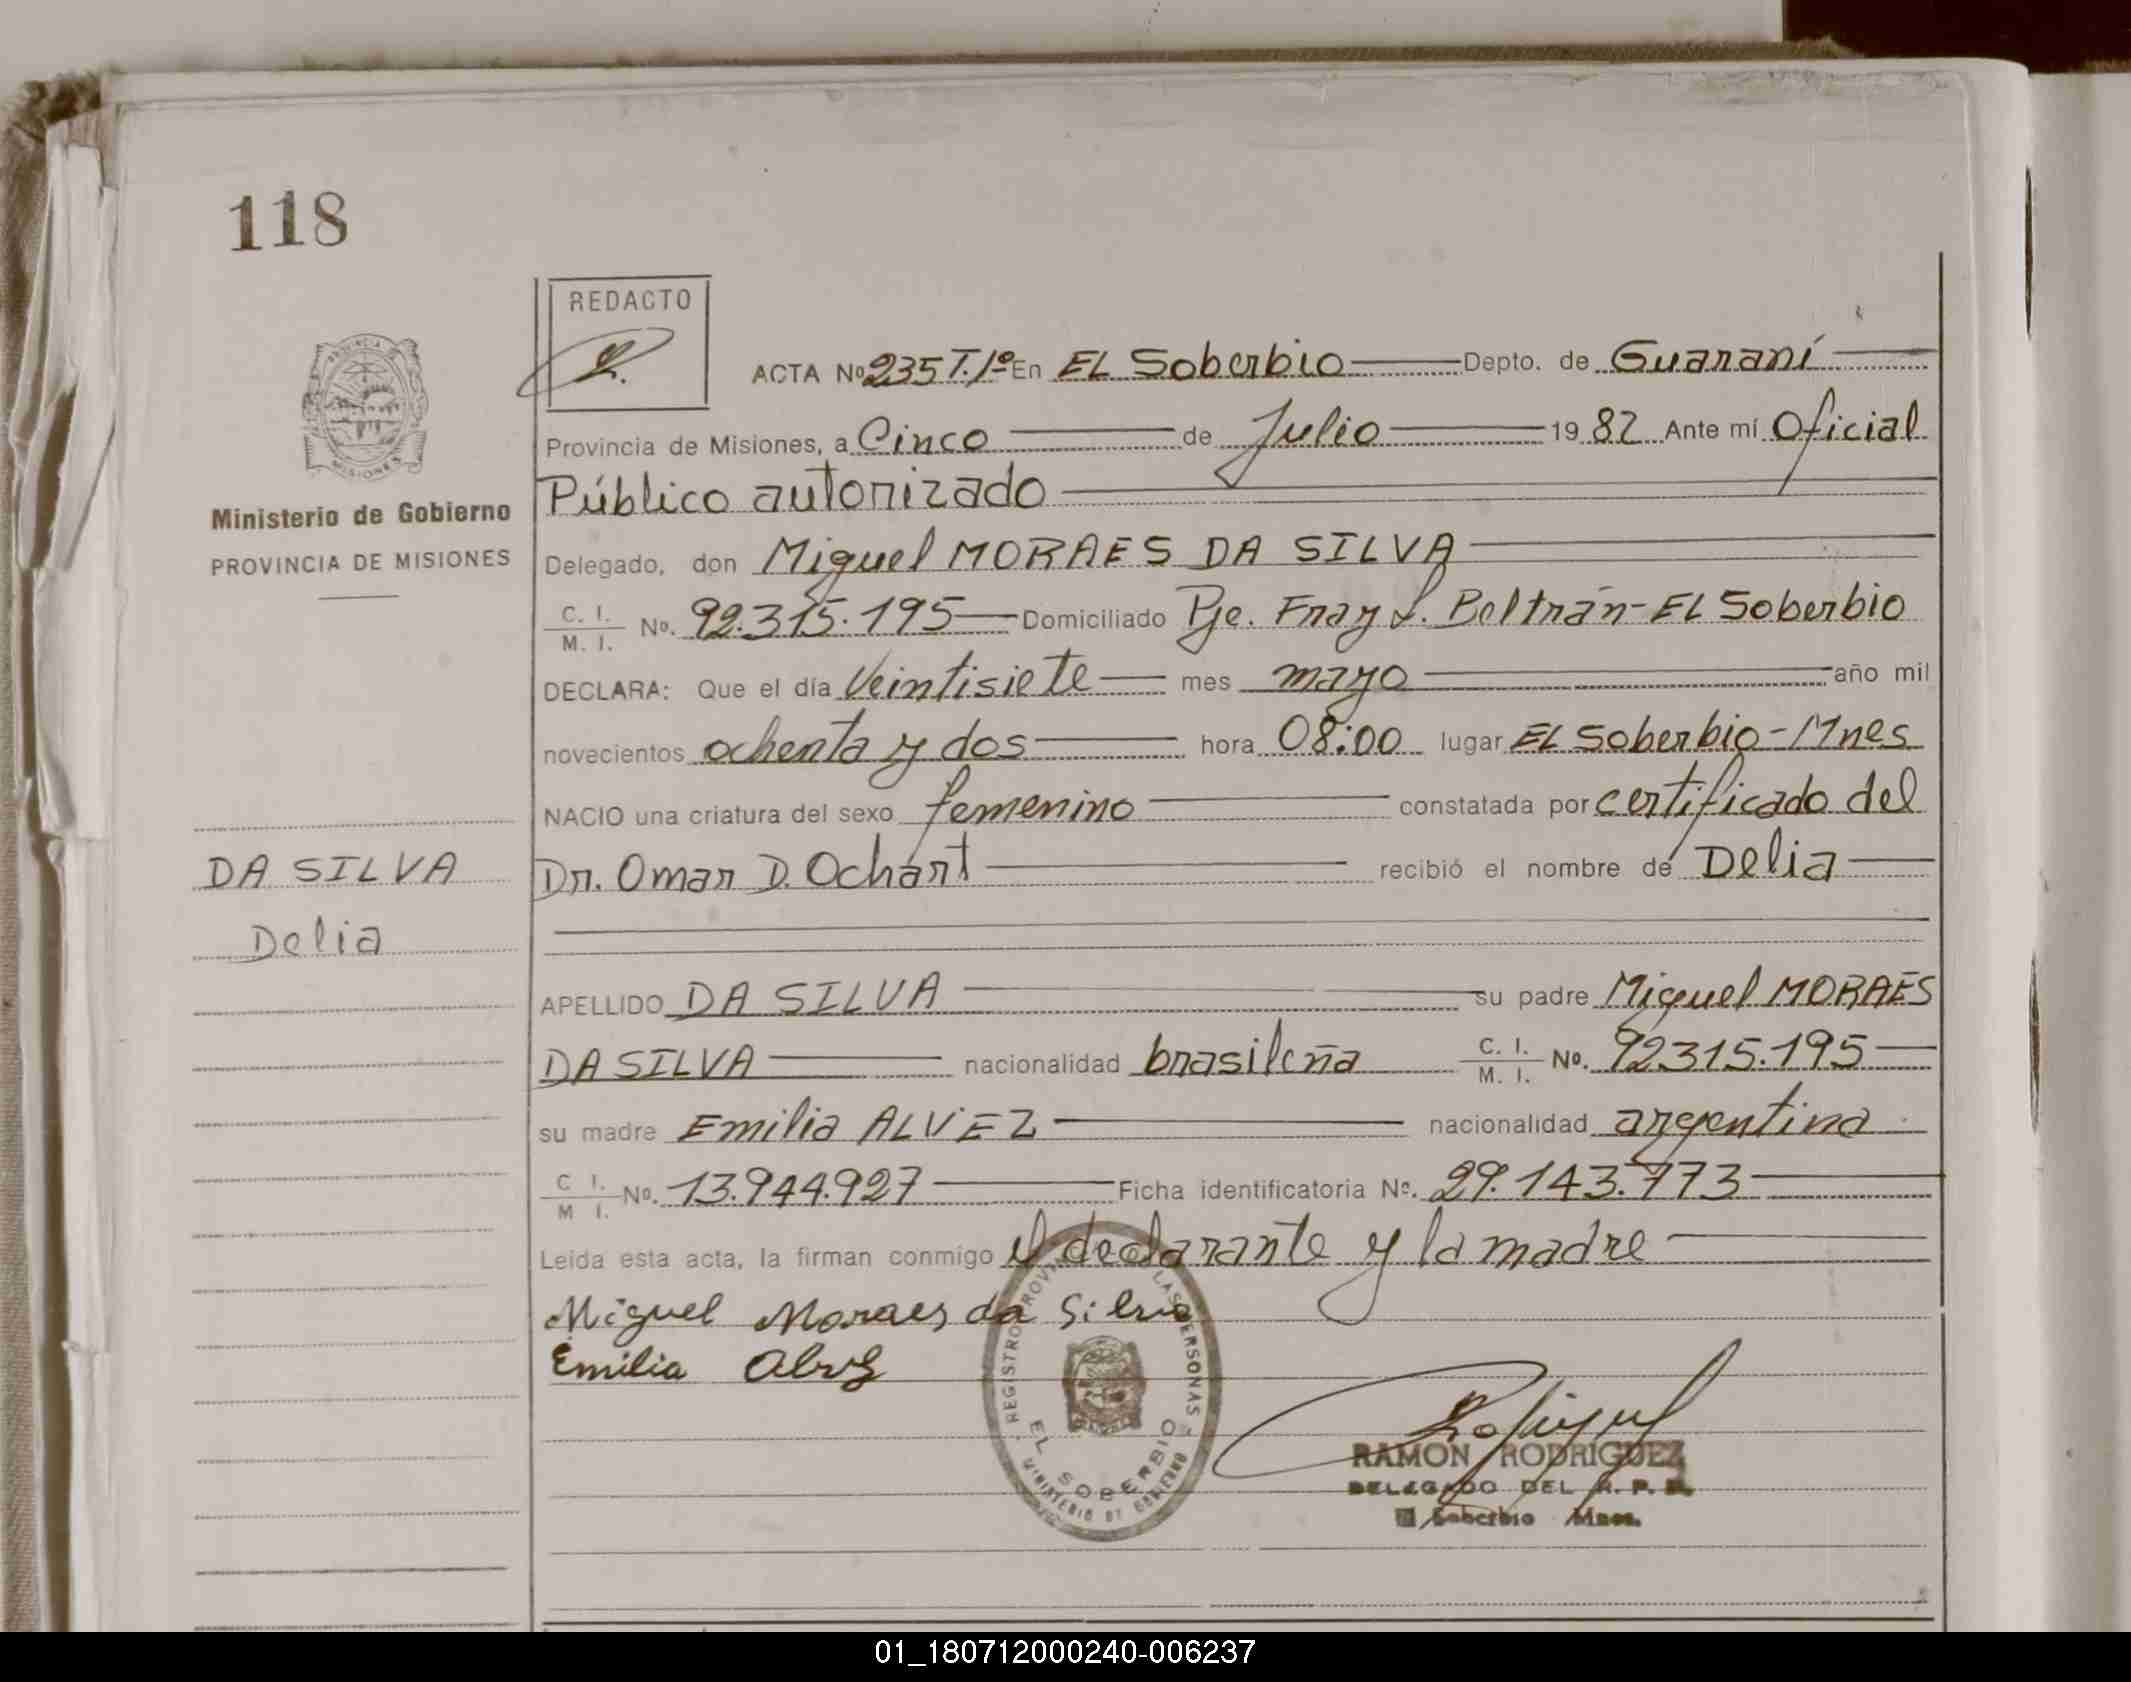 118
REDACTO
ACTA Nº 235 T.1º En EL Soberbio Depto. de Guaraní
Provincia de Misiones, a Cinco de Julio 1982 Ante mí Oficial
Público autorizado
Ministerio de Gobierno
PROVINCIA DE MISIONES
Delegado, don Miguel MORAES DA SILVA
C. I. M. I. Nº. 92.315.195 Domiciliado Pje. Fray L. Beltrán-EL Soberbio
DECLARA: Que el día Veintisiete mes mayo año mil
novecientos ochenta y dos hora 08:00 lugar EL Soberbio-Mnes
NACIO una criatura del sexo femenino constatada por certificado del
Dr. Omar D. Ochart recibió el nombre de Delia
DA SILVA
Delia
APELLIDO DA SILVA su padre Miguel MORAES
DA SILVA nacionalidad brasileña C. I. M. I. Nº. 92315.195
su madre Emilia ALVEZ nacionalidad argentina
C I. M I. Nº. 13.944.927 Ficha identificatoria Nº. 29.143.773
Leida esta acta, la firman conmigo el declarante y la madre
Miguel Moraes da Silva
Emilia Alvez
REGISTRO PROVINCIAL DE LAS PERSONAS
EL SOBERBIO
MINISTERIO DE GOBIERNO
RAMON RODRIGUEZ
DELEGADO DEL R. P. P.
El Soberbio Mnes.
01_180712000240-006237